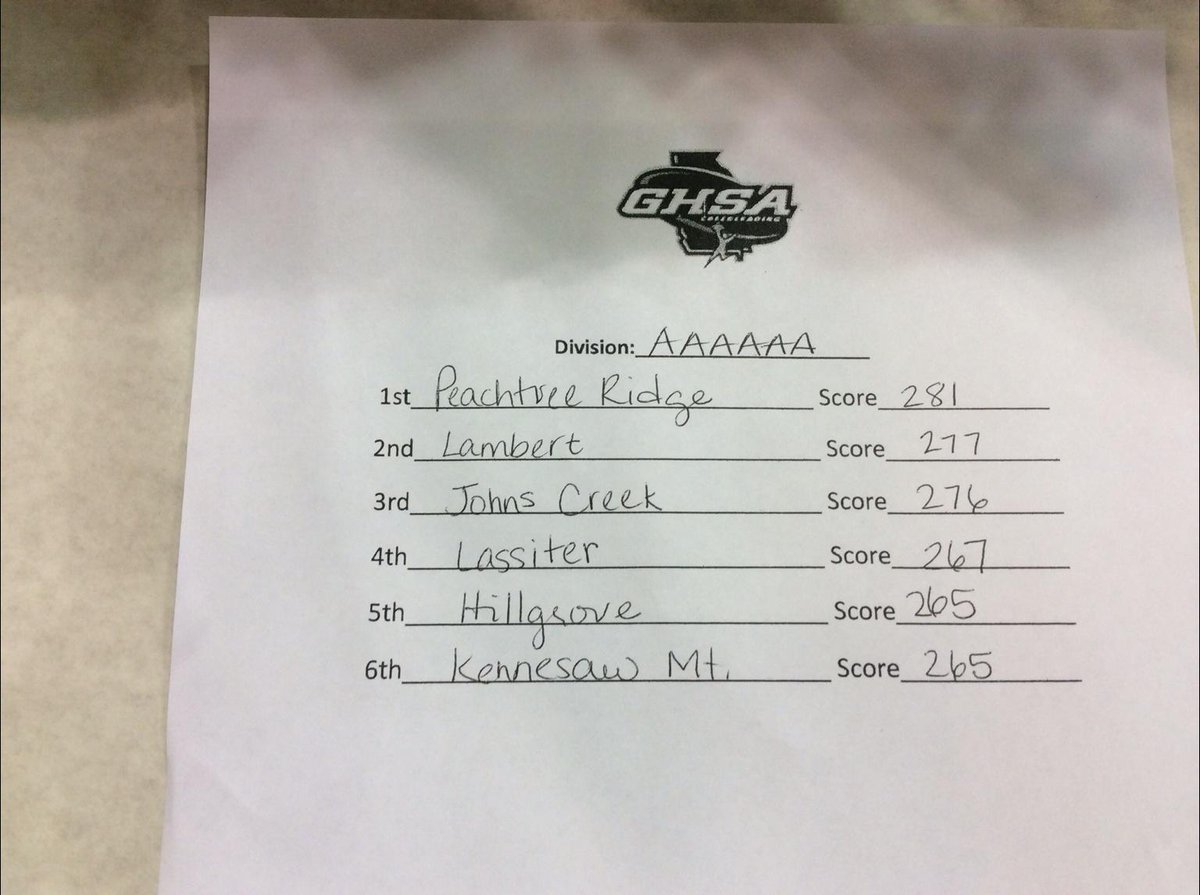 GHSA
CHEERLEADING
Division: AAAAAA
1st Peachtree Ridge Score 281
2nd Lambert Score 277
3rd Johns Creek Score 276
4th Lassiter Score 267
5th Hillgrove Score 265
6th Kennesaw Mt. Score 265